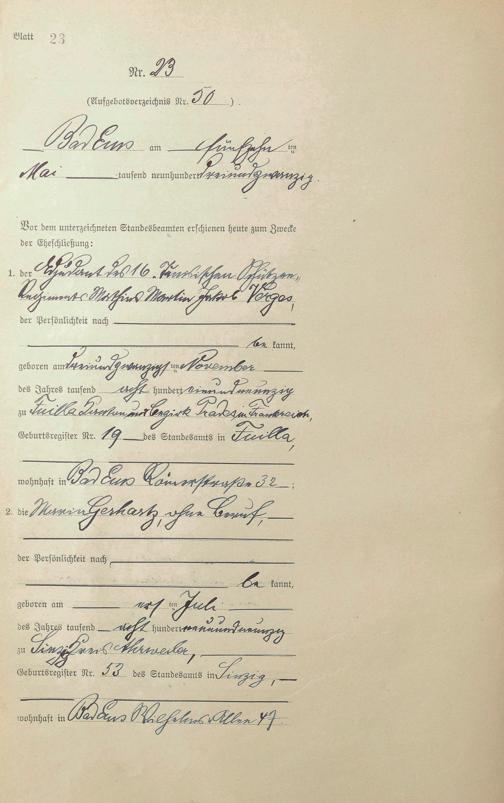 Blatt 23
Nr. 23
(Aufgebotsverzeichnis Nr. 50).
Bad Ems am fünfzehn ten
Mai tausend neunhundert dreiundzwanzig.
Vor dem unterzeichneten Standesbeamten erschienen heute zum Zwecke
der Eheschließung:
1. der Adjudant des 16. Tunisischen Schützen-
Regiments Mathias Martin Jakob Verges,
der Persönlichkeit nach
be kannt,
geboren am dreiundzwanzigsten November
des Jahres tausend acht hundert neunzig
zu Fuilla Kanton und Bezirk Prades in Frankreich,
Geburtsregister Nr. 19 des Standesamts in Fuilla,
wohnhaft in Bad Ems Römerstraße 32;
2. die Maria Gerhartz, ohne Beruf,
der Persönlichkeit nach
be kannt,
geboren am ersten Juli
des Jahres tausend acht hundert neunundneunzig
zu Sinzig Kreis Ahrweiler,
Geburtsregister Nr. 53 des Standesamts in Sinzig,
wohnhaft in Bad Ems Wilhelms-Allee 47.